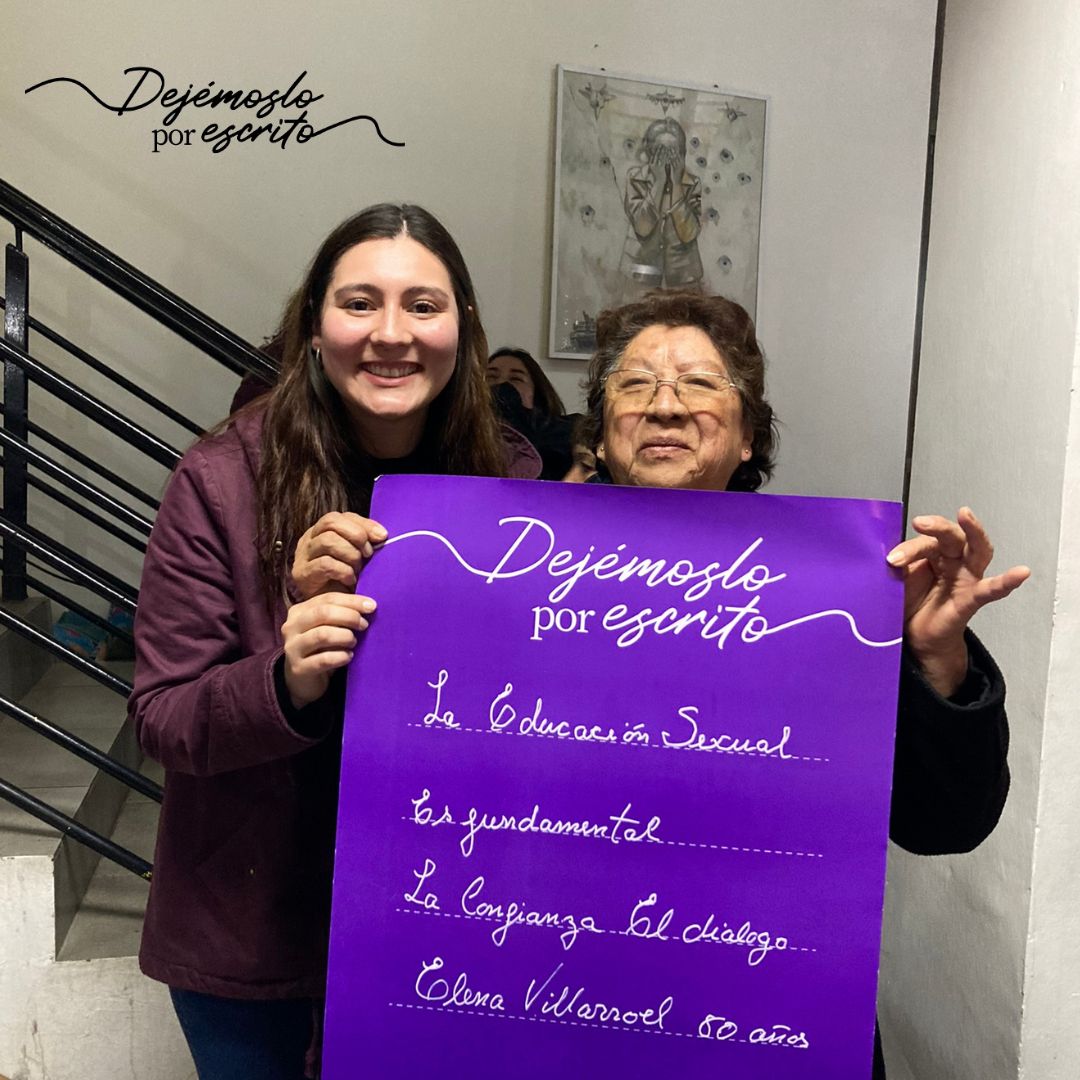 Dejémoslo
por escrito
Dejémoslo
por escrito
La Educación Sexual
Es fundamental
La Confianza El dialogo
Elena Villarroel 80 años